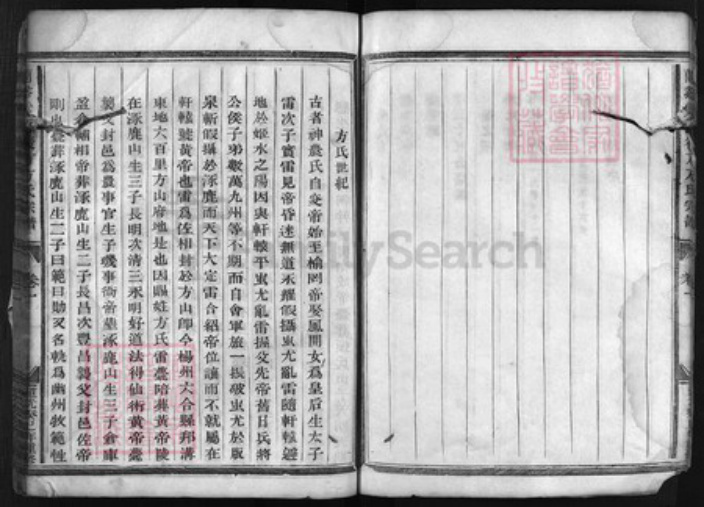 方氏世紀
古者神農氏自炎帝始至榆罔帝娶鳳開女爲皇后生太子
雷次子實雷見帝昏迷無道禾耀假攝蚩尤亂雷隨軒轅避
地於姬水之陽因與軒轅平蚩尤亂雷撮父先帝舊日兵將
公侯子弟數萬九州等不期而自會軍旅一振破蚩尤於版
泉斬假攝於涿鹿而天下大定雷合紹帝位讓而不就屬在
軒轅號黃帝也雷爲佐相封於方山即今楊州六合縣邦溝
東地六百里方山府地是也因賜姓方氏雷薨陪葬黃帝陵
在涿鹿山生三子長明次清三永明好道法得仙術黃帝薨
襲父封邑爲農事官生子 事 帝 涿鹿山生三子倉庫
盈倉輔相帝葬涿鹿山生二子長昌次豐昌襲父封邑佐帝
則鬼薨葬涿鹿山生二子曰範曰勛又名 爲幽州牧範性
FamilySearch
卷一
氏宗譜
卷一